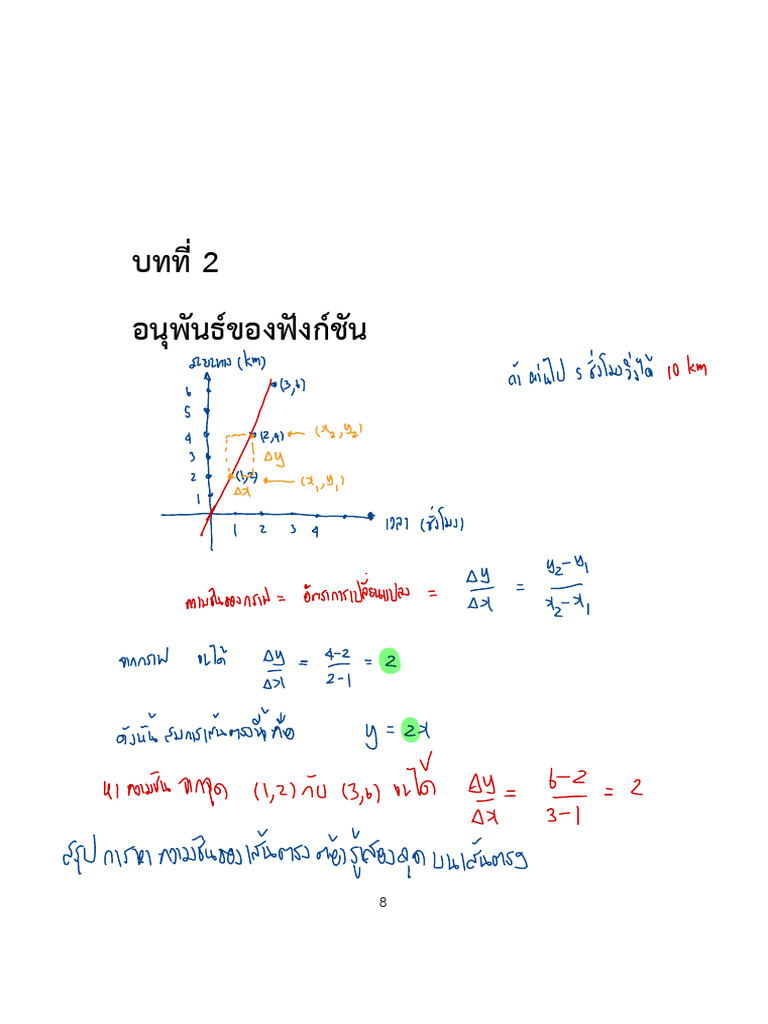 บทที่ 2
อนุพันธ์ของฟังก์ชัน
ระยะทาง (km)
ถ้า ผ่านไป 5 ชั่วโมงวิ่งได้ 10 km
6
(3,6)
5
4
(2,4) ← (x₂, y₂)
3
Δy
2
(1,2) ← (x₁, y₁)
Δx
1
1 2 3 4
เวลา (ชั่วโมง)
ความชันของกราฟ = อัตราการเปลี่ยนแปลง = Δy/Δx = y₂-y₁/x₂-x₁
จากกราฟ จะได้ Δy/Δx = 4-2/2-1 = 2
ดังนั้น สมการเส้นตรงนี้ คือ y = 2x
หา ความชัน จากจุด (1,2) กับ (3,6) จะได้ Δy/Δx = 6-2/3-1 = 2
สรุป การหา ความชันของเส้นตรง ต้องรู้สองจุด บนเส้นตรง
8